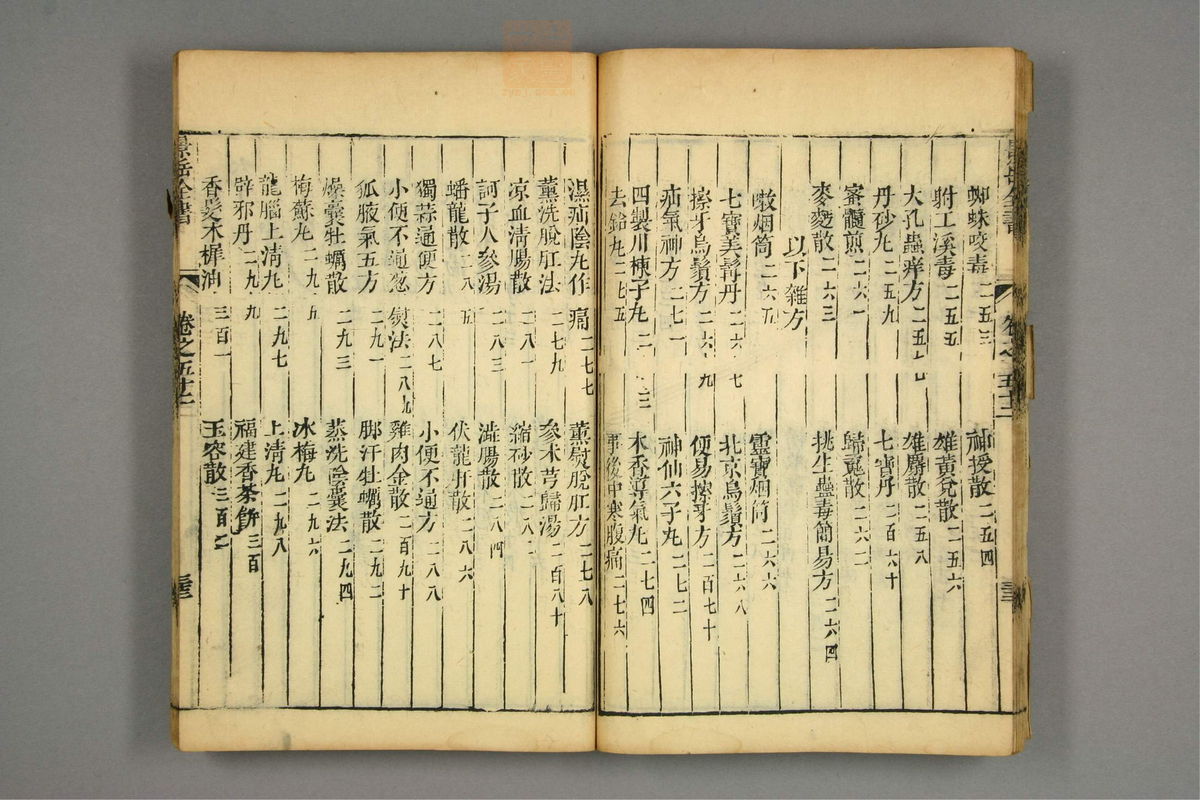 景岳全書 卷之五十二
蜘蛛咬毒 二五三 神授散 二五四
射工溪毒 二五五 雄黃兌散 二五六
大孔蟲痒方 二五七 雄麝散 二五八
丹砂丸 二五九 七寶丹 二百六十
審髓煎 二六一 歸魂散 二六二
麥麫散 二六三 挑生蠱毒簡易方 二六四
以下雜方
噙烟筒 二六五 靈寶烟筒 二六六
七寶美髯丹 二六七 北京烏鬚方 二六八
擦牙烏鬚方 二六九 便易擦牙方 二百七十
疝氣神方 二七一 神仙六子丸 二七二
四製川楝子丸 二七三 木香導氣丸 二七四
去鈴丸 二七五 事後中寒腹痛 二七六
濕疝陰丸作痛 二七七 薰熨脫肛方 二七八
薰洗脫肛法 二七九 參朮芎歸湯 二百八十
凉血清腸散 二八一 縮砂散 二八二
訶子人參湯 二八三 澁腸散 二八四
蟠龍散 二八五 伏龍肝散 二八六
獨蒜通便方 二八七 小便不通方 二八八
小便不通葱熨法 二八九 雞肉金散 二百九十
狐腋氣五方 二九一 脚汗牡蠣散 二九二
燥囊牡蠣散 二九三 蒸洗陰囊法 二九四
梅蘇丸 二九五 冰梅丸 二九六
龍腦上清丸 二九七 上清丸 二九八
辟邪丹 二九九 福建香茶餅 三百
香髮木樨油 三百一 玉容散 三百二
景岳全書 卷之五十二